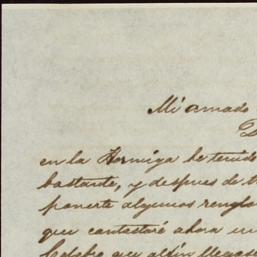 Mi amado
en la Hormiga he tenido
bastante, y despues de t
ponerte algunos rengl
que contestaré ahora